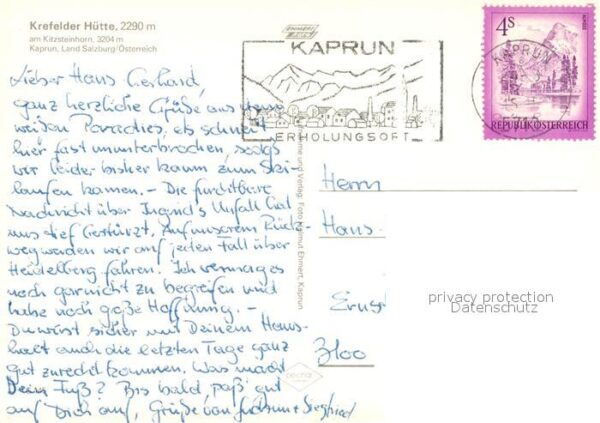 Krefelder Hütte, 2290 m
am Kitzsteinhorn, 3204 m
Kaprun, Land Salzburg/Österreich
Lieber Hans Gerhard,
ganz herzliche Grüße aus
weißen Paradies, es schneit
hier fast ununterbrochen, sodaß
wir leider bisher kaum zum Ski-
laufen kamen. - Die furchtbare
Nachricht über Ingrid's Unfall hat
uns tief bestürzt. Auf unserem Rück-
weg werden wir auf jeden Fall über
Heidelberg fahren. Ich vermag es
noch garnicht zu begreifen und
habe noch große Hoffnung. -
Du wirst sicher mit Deinem Haus-
halt auch die letzten Tage ganz
gut zurecht kommen. Was macht
Dein Fuß? Bis bald, paß gut
auf Dich auf, Grüße von + Siegfried
KAPRUN
ERHOLUNGSORT
4S
REPUBLIK ÖSTERREICH
KAPRUN
und Verlag: Foto Helmut Ehmert, Kaprun
Herrn
Hans-
Ernst
3100
privacy protection
Datenschutz